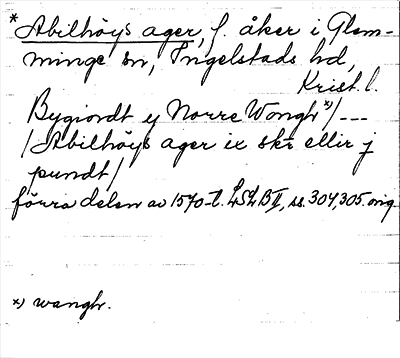 * Abilhöys ager, f. åker i Glem-
minge sn, Ingelstads hd,
Krist. l.
Bygiordt y Norre Wongh*) / ---
/ Abilhöys ager ix sk:r ellir j
pundt /
förra delen av 1570-t. LSLB II, ss. 304, 305. orig.
*) wangh.